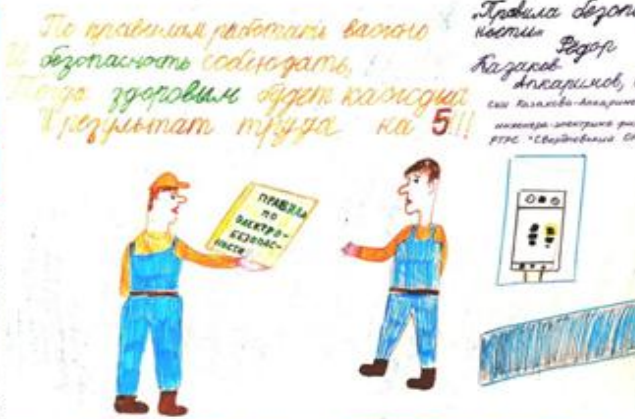 По правилам работать важно
И безопасность соблюдать,
Тогда здоровым будет каждый
И результат труда на 5!!!
"Правила безопас
ности"
Фёдор
Казаков
Аппаримов,
сын Казакова-Аппарим
инженера-электрика
РТРС "Свердловский О
ПРАВИЛА
ПО
ЭЛЕКТРО-
БЕЗОПАС-
НОСТИ